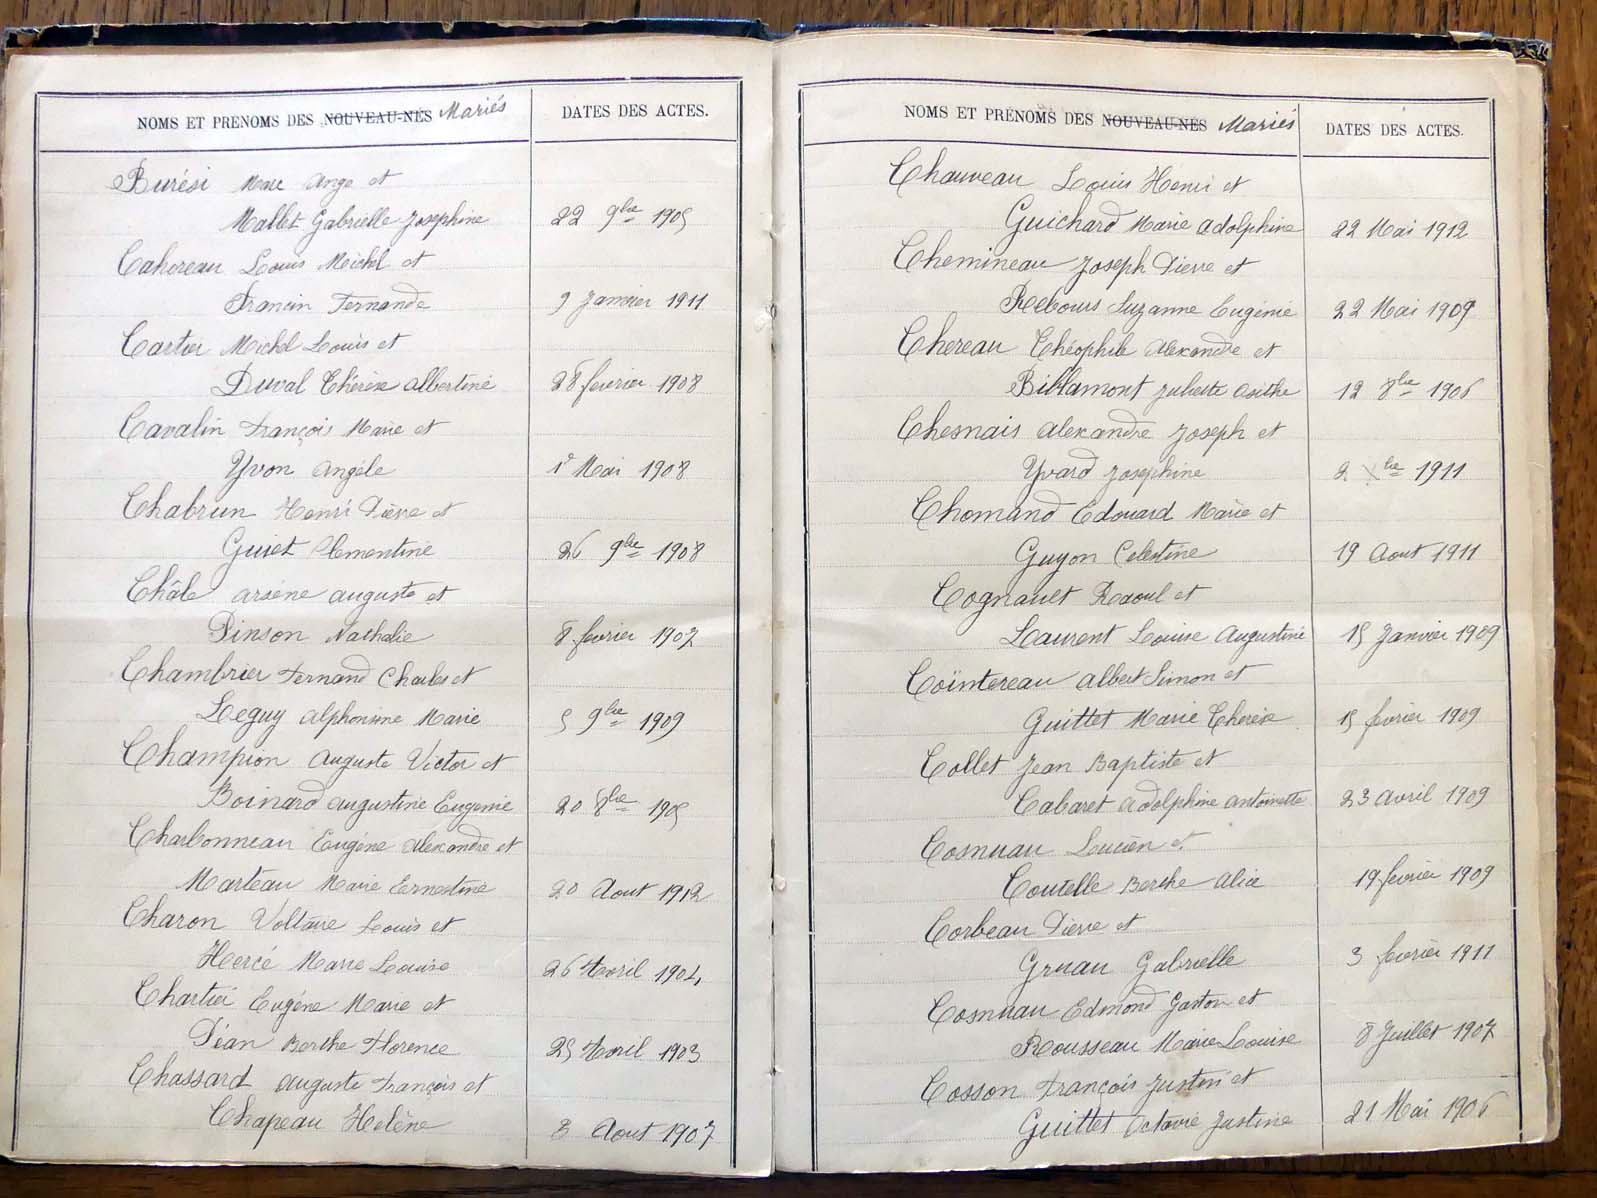 NOMS ET PRENOMS DES NOUVEAU-NÉS Mariés DATES DES ACTES.
Burési Marc Ange et
Mallet Gabrielle Josephine 22 9bre 1905
Cahoreau Louis Michel et
Francin Fernande 9 Janvier 1911
Cartier Michel Louis et
Duval Thérèse Albertine 28 fevrier 1908
Cavalin François Marie et
Yvon Angèle 1er Mai 1908
Chabrun Henri Pierre et
Guiet Clementine 26 9bre 1908
Châle Arsène Auguste et
Pinson Nathalie 8 fevrier 1907
Chambrier Fernand Charles et
Leguy Alphonsine Marie 5 9bre 1909
Champion Auguste Victor et
Boinard Augustine Eugenie 20 8bre 1905
Charbonneau Eugène Alexandre et
Marteau Marie Ernestine 20 Aout 1912
Charon Voltaire Louis et
Hercé Marie Louise 26 Avril 1904
Chartier Eugène Marie et
Péan Berthe Florence 25 Avril 1903
Chassard Auguste François et
Chapeau Helène 3 Aout 1907
NOMS ET PRÉNOMS DES NOUVEAU-NÉS Mariés DATES DES ACTES.
Chauveau Louis Henri et
Guichard Marie Adolphine 22 Mai 1912
Chemineau Joseph Pierre et
Rebours Suzanne Eugénie 22 Mai 1909
Chereau Théophile Alexandre et
Billamont Juliette 12 8bre 1906
Chesnais Alexandre Joseph et
Yvard Josephine 2 Xbre 1911
Chomand Edouard Marie et
Guyon Celestine 19 Aout 1911
Cognault Raoul et
Laurent Louise Augustine 15 Janvier 1909
Coïntereau Albert Simon et
Guittet Marie Therèse 15 fevrier 1909
Collet Jean Baptiste et
Cabaret Adolphine Antoinette 23 Avril 1909
Cosnuau Lucien et
Coutelle Berthe Alice 19 fevrier 1909
Corbeau Pierre et
Gruau Gabrielle 3 fevrier 1911
Cosnuau Edmond Gaston et
Rousseau Marie Louise 8 Juillet 1907
Cosson François Justin et
Guittet Octavie Justine 21 Mai 1906